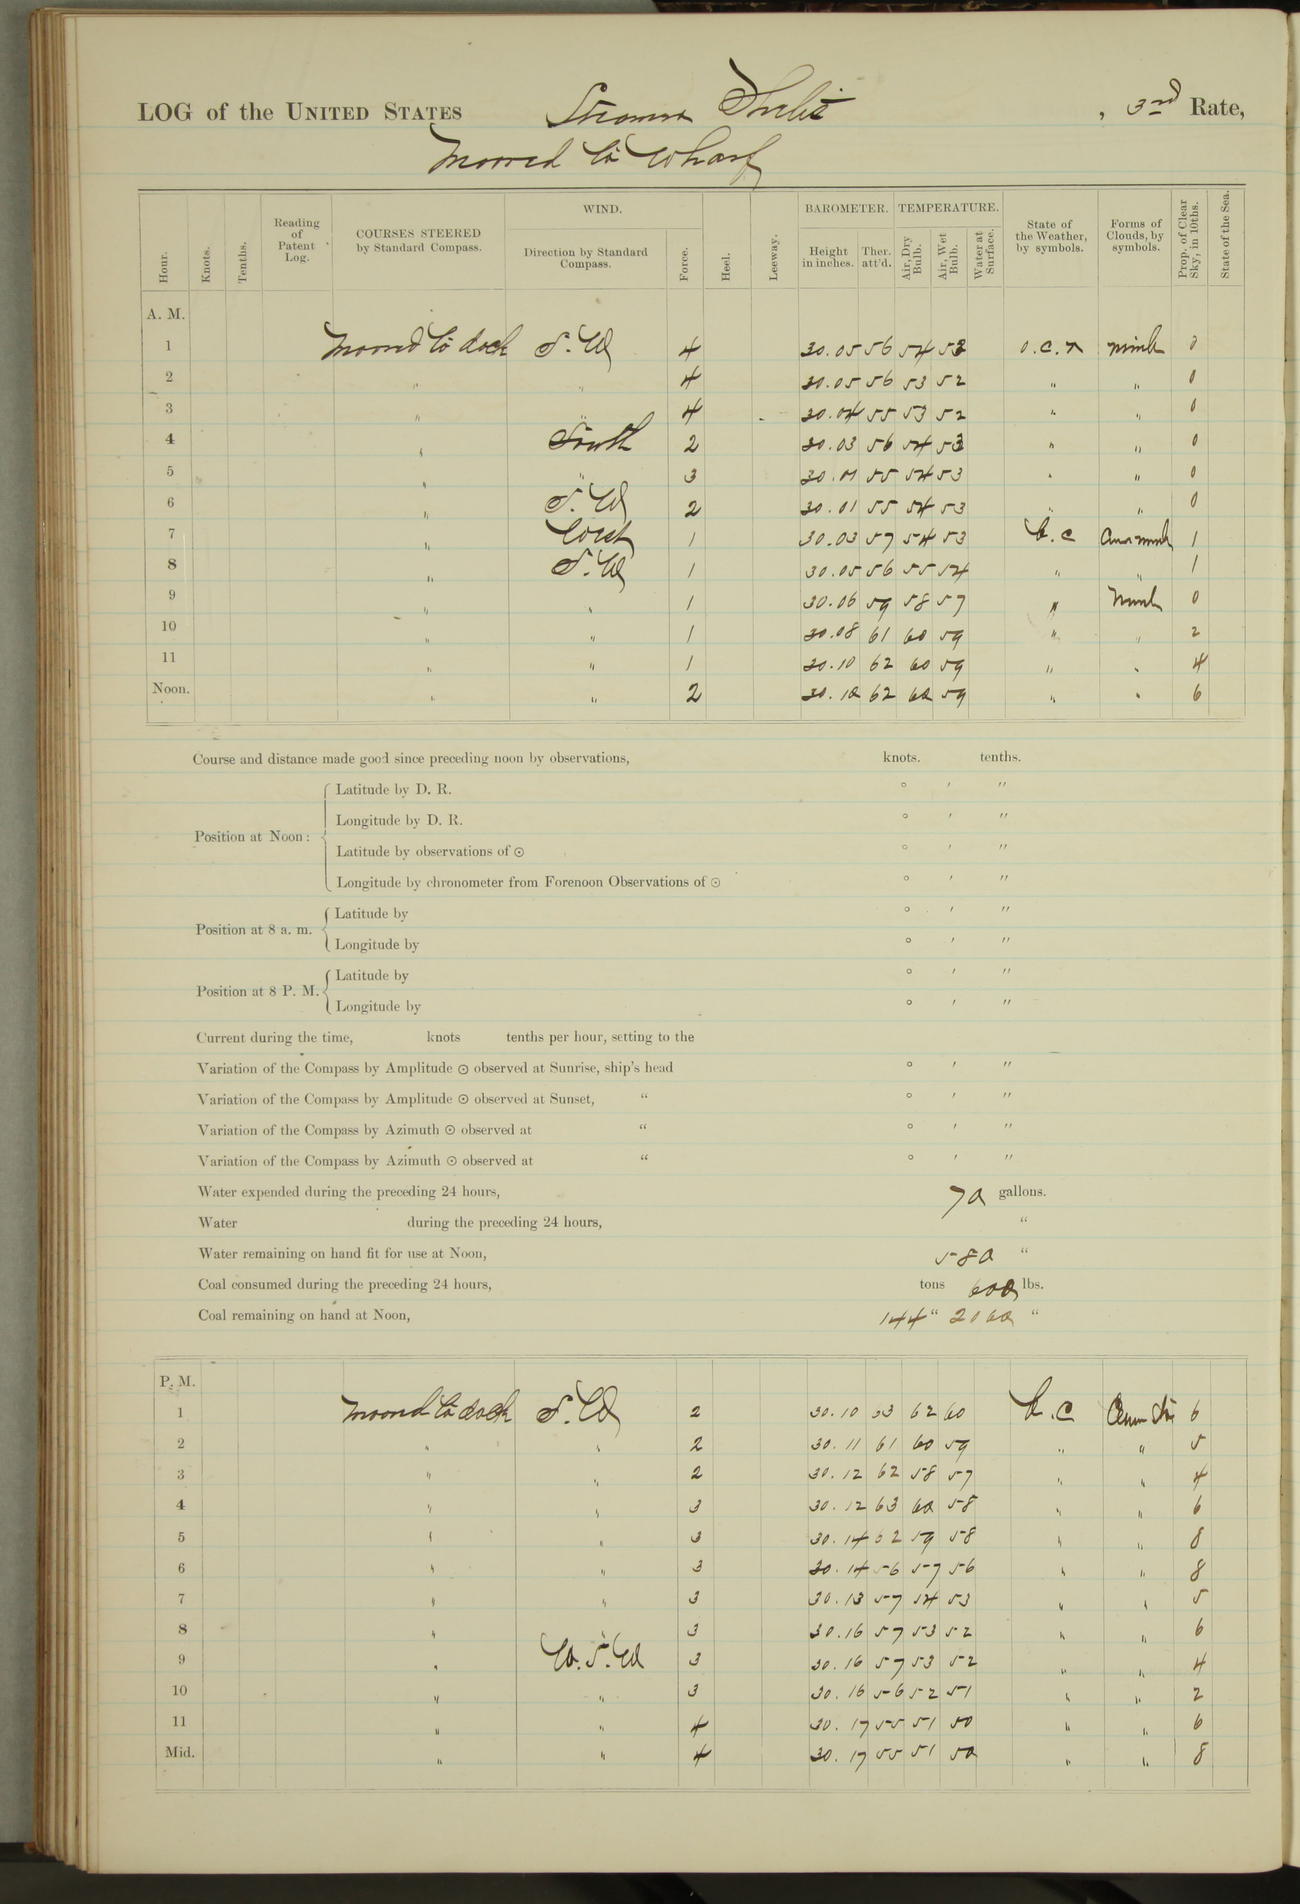 LOG of the UNITED STATES Steamer Thetis, 3rd Rate,
Moored to Wharf
Hour. Knots. Tenths. Reading of Patent Log. COURSES STEERED by Standard Compass. WIND. Direction by Standard Compass. Force. Heel. Leeway. BAROMETER. Height in inches. Ther. att'd. TEMPERATURE. Air, Dry Bulb. Air, Wet Bulb. Water at Surface. State of the Weather, by symbols. Forms of Clouds, by symbols. Prop. of Clear Sky, in 10ths. State of the Sea.
A. M.
1 Moored to dock S. W 4 30.05 56 54 53 o.c.r nimb 0
2 " " 4 30.05 56 53 52 " " 0
3 " " 4 30.04 55 53 52 " " 0
4 " South 2 30.03 56 54 53 " " 0
5 " " 3 30.01 55 54 53 " " 0
6 " S. W 2 30.01 55 54 53 " " 0
7 " West 1 30.03 57 54 53 b.c 1
8 " S. W 1 30.05 56 55 54 " " 1
9 " " 1 30.06 59 58 57 " Nimb 0
10 " " 1 30.08 61 60 59 " " 2
11 " " 1 30.10 62 60 59 " " 4
Noon. " " 2 30.10 62 60 59 " " 6
Course and distance made good since preceding noon by observations, knots. tenths.
Position at Noon: Latitude by D. R. ° ′ ″
Longitude by D. R. ° ′ ″
Latitude by observations of ☉ ° ′ ″
Longitude by chronometer from Forenoon Observations of ☉ ° ′ ″
Position at 8 a. m. Latitude by ° ′ ″
Longitude by ° ′ ″
Position at 8 P. M. Latitude by ° ′ ″
Longitude by ° ′ ″
Current during the time, knots tenths per hour, setting to the
Variation of the Compass by Amplitude ☉ observed at Sunrise, ship's head ° ′ ″
Variation of the Compass by Amplitude ☉ observed at Sunset, " ° ′ ″
Variation of the Compass by Azimuth ☉ observed at " ° ′ ″
Variation of the Compass by Azimuth ☉ observed at " ° ′ ″
Water expended during the preceding 24 hours, 70 gallons.
Water during the preceding 24 hours, "
Water remaining on hand fit for use at Noon, 580 "
Coal consumed during the preceding 24 hours, tons 600 lbs.
Coal remaining on hand at Noon, 144 " 2060 "
P. M.
1 Moored to dock S. W 2 30.10 63 62 60 b.c 6
2 " " 2 30.11 61 60 59 " " 5
3 " " 2 30.12 62 58 57 " " 4
4 " " 3 30.12 63 60 58 " " 6
5 " " 3 30.14 62 59 58 " " 8
6 " " 3 30.14 56 57 56 " " 8
7 " " 3 30.13 57 54 53 " " 5
8 " " 3 30.16 57 53 52 " " 6
9 " W. S. W 3 30.16 57 53 52 " " 4
10 " " 3 30.16 56 52 51 " " 2
11 " " 4 30.17 55 51 50 " " 6
Mid. " " 4 30.17 55 51 50 " " 8